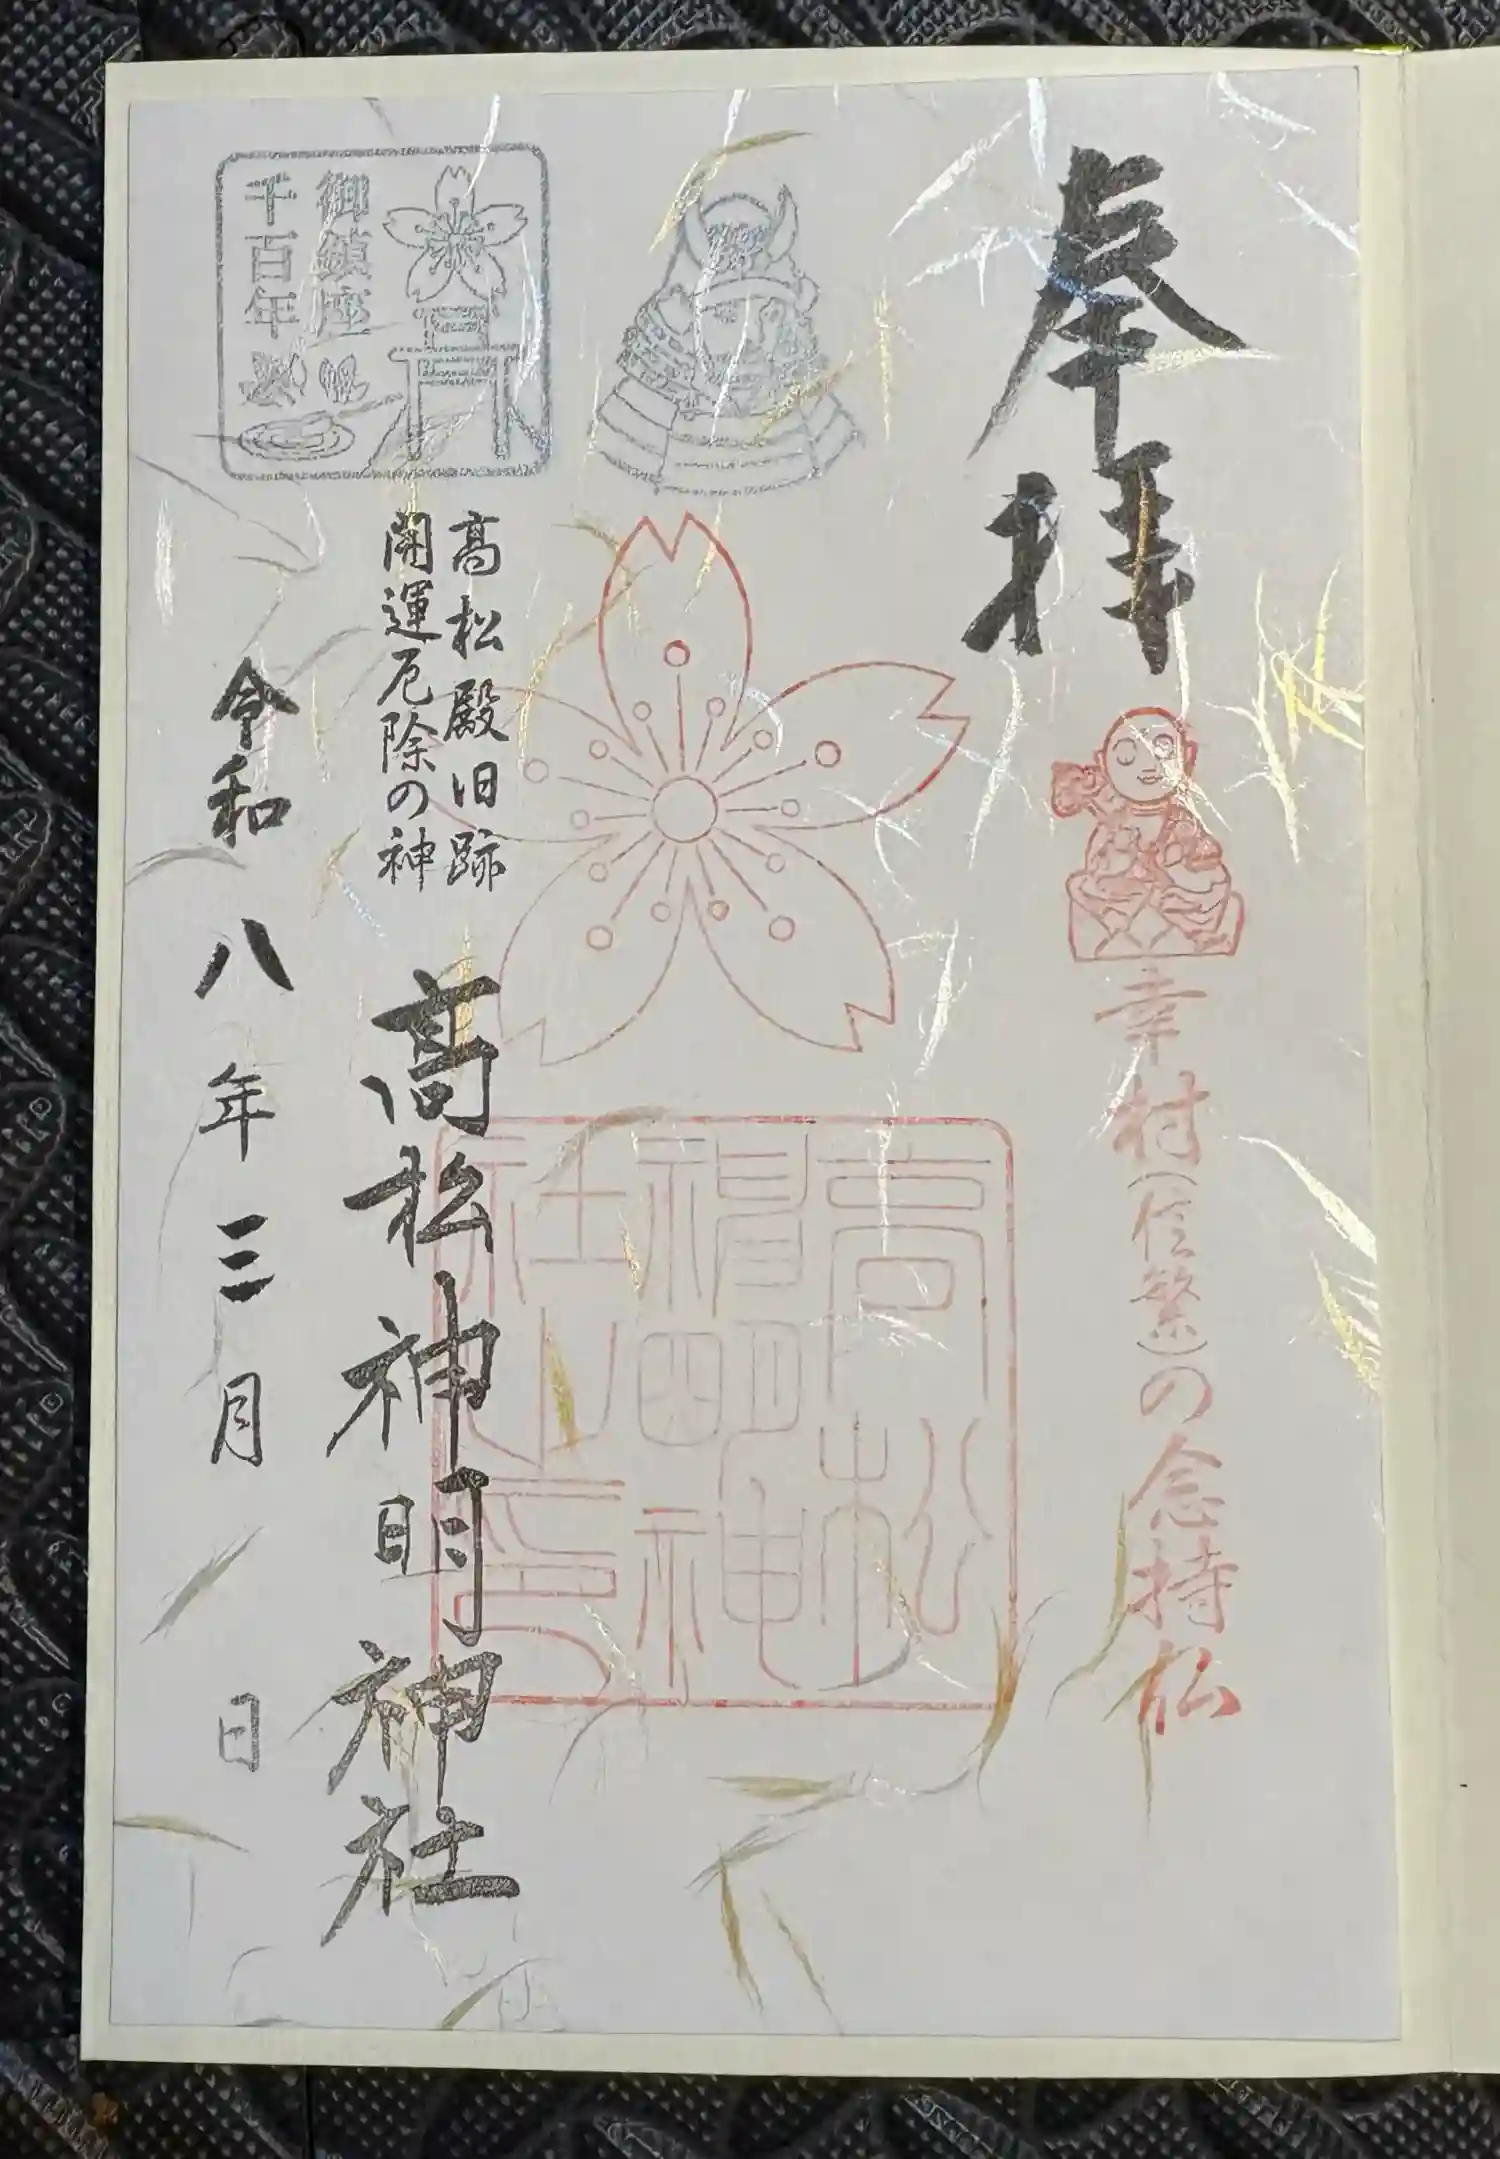 奉拝
幸村(信繁)の念持仏
高松
神明神
社之印
御鎮座
千百年
高松殿旧跡
開運厄除の神
高松神明神社
令和八年三月 日